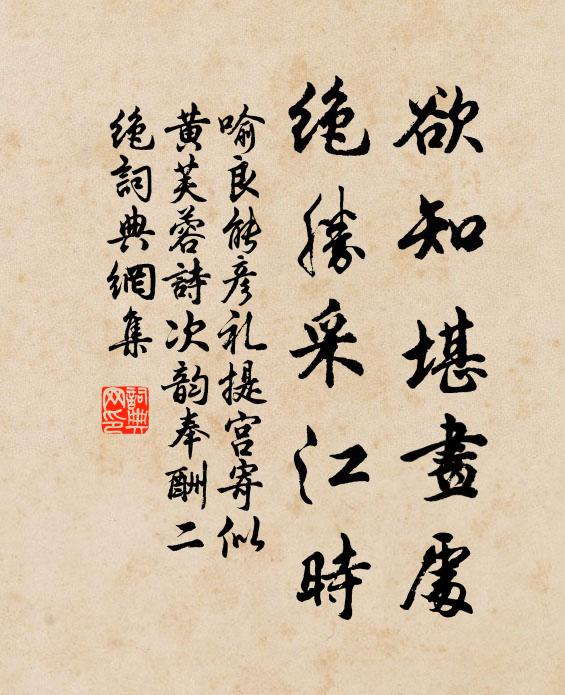 欲知堪畫處
絶勝采江時
喻良能彦礼提宫寄似
黄芙蓉詩次韵奉酬二
绝詞典網集
詞典
网印